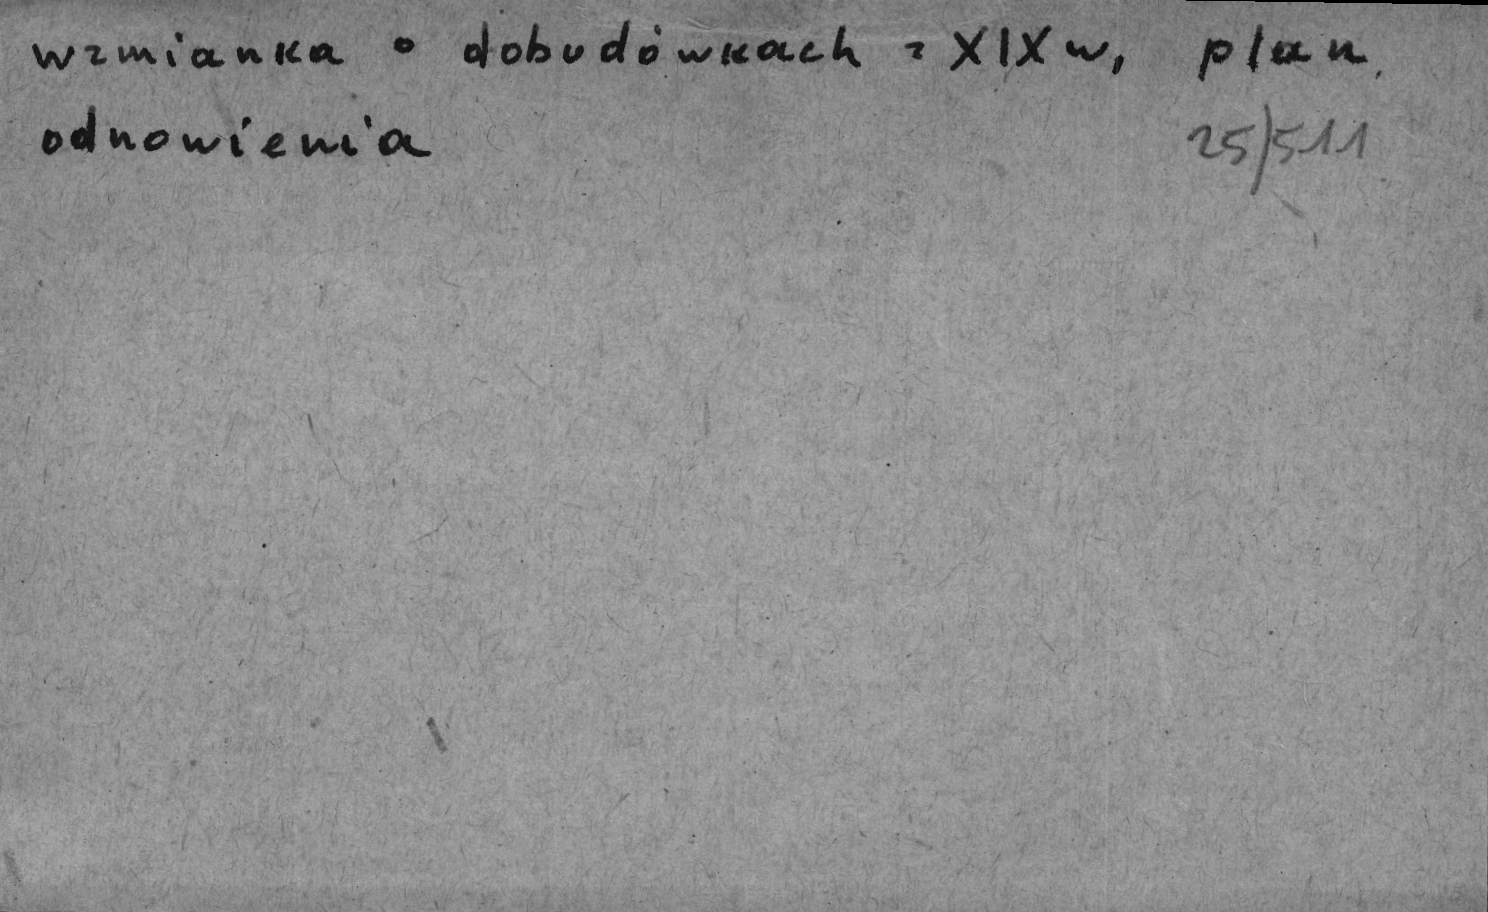 wzmianka o dobudówkach z XIX w, plan
odnowienia
25/511